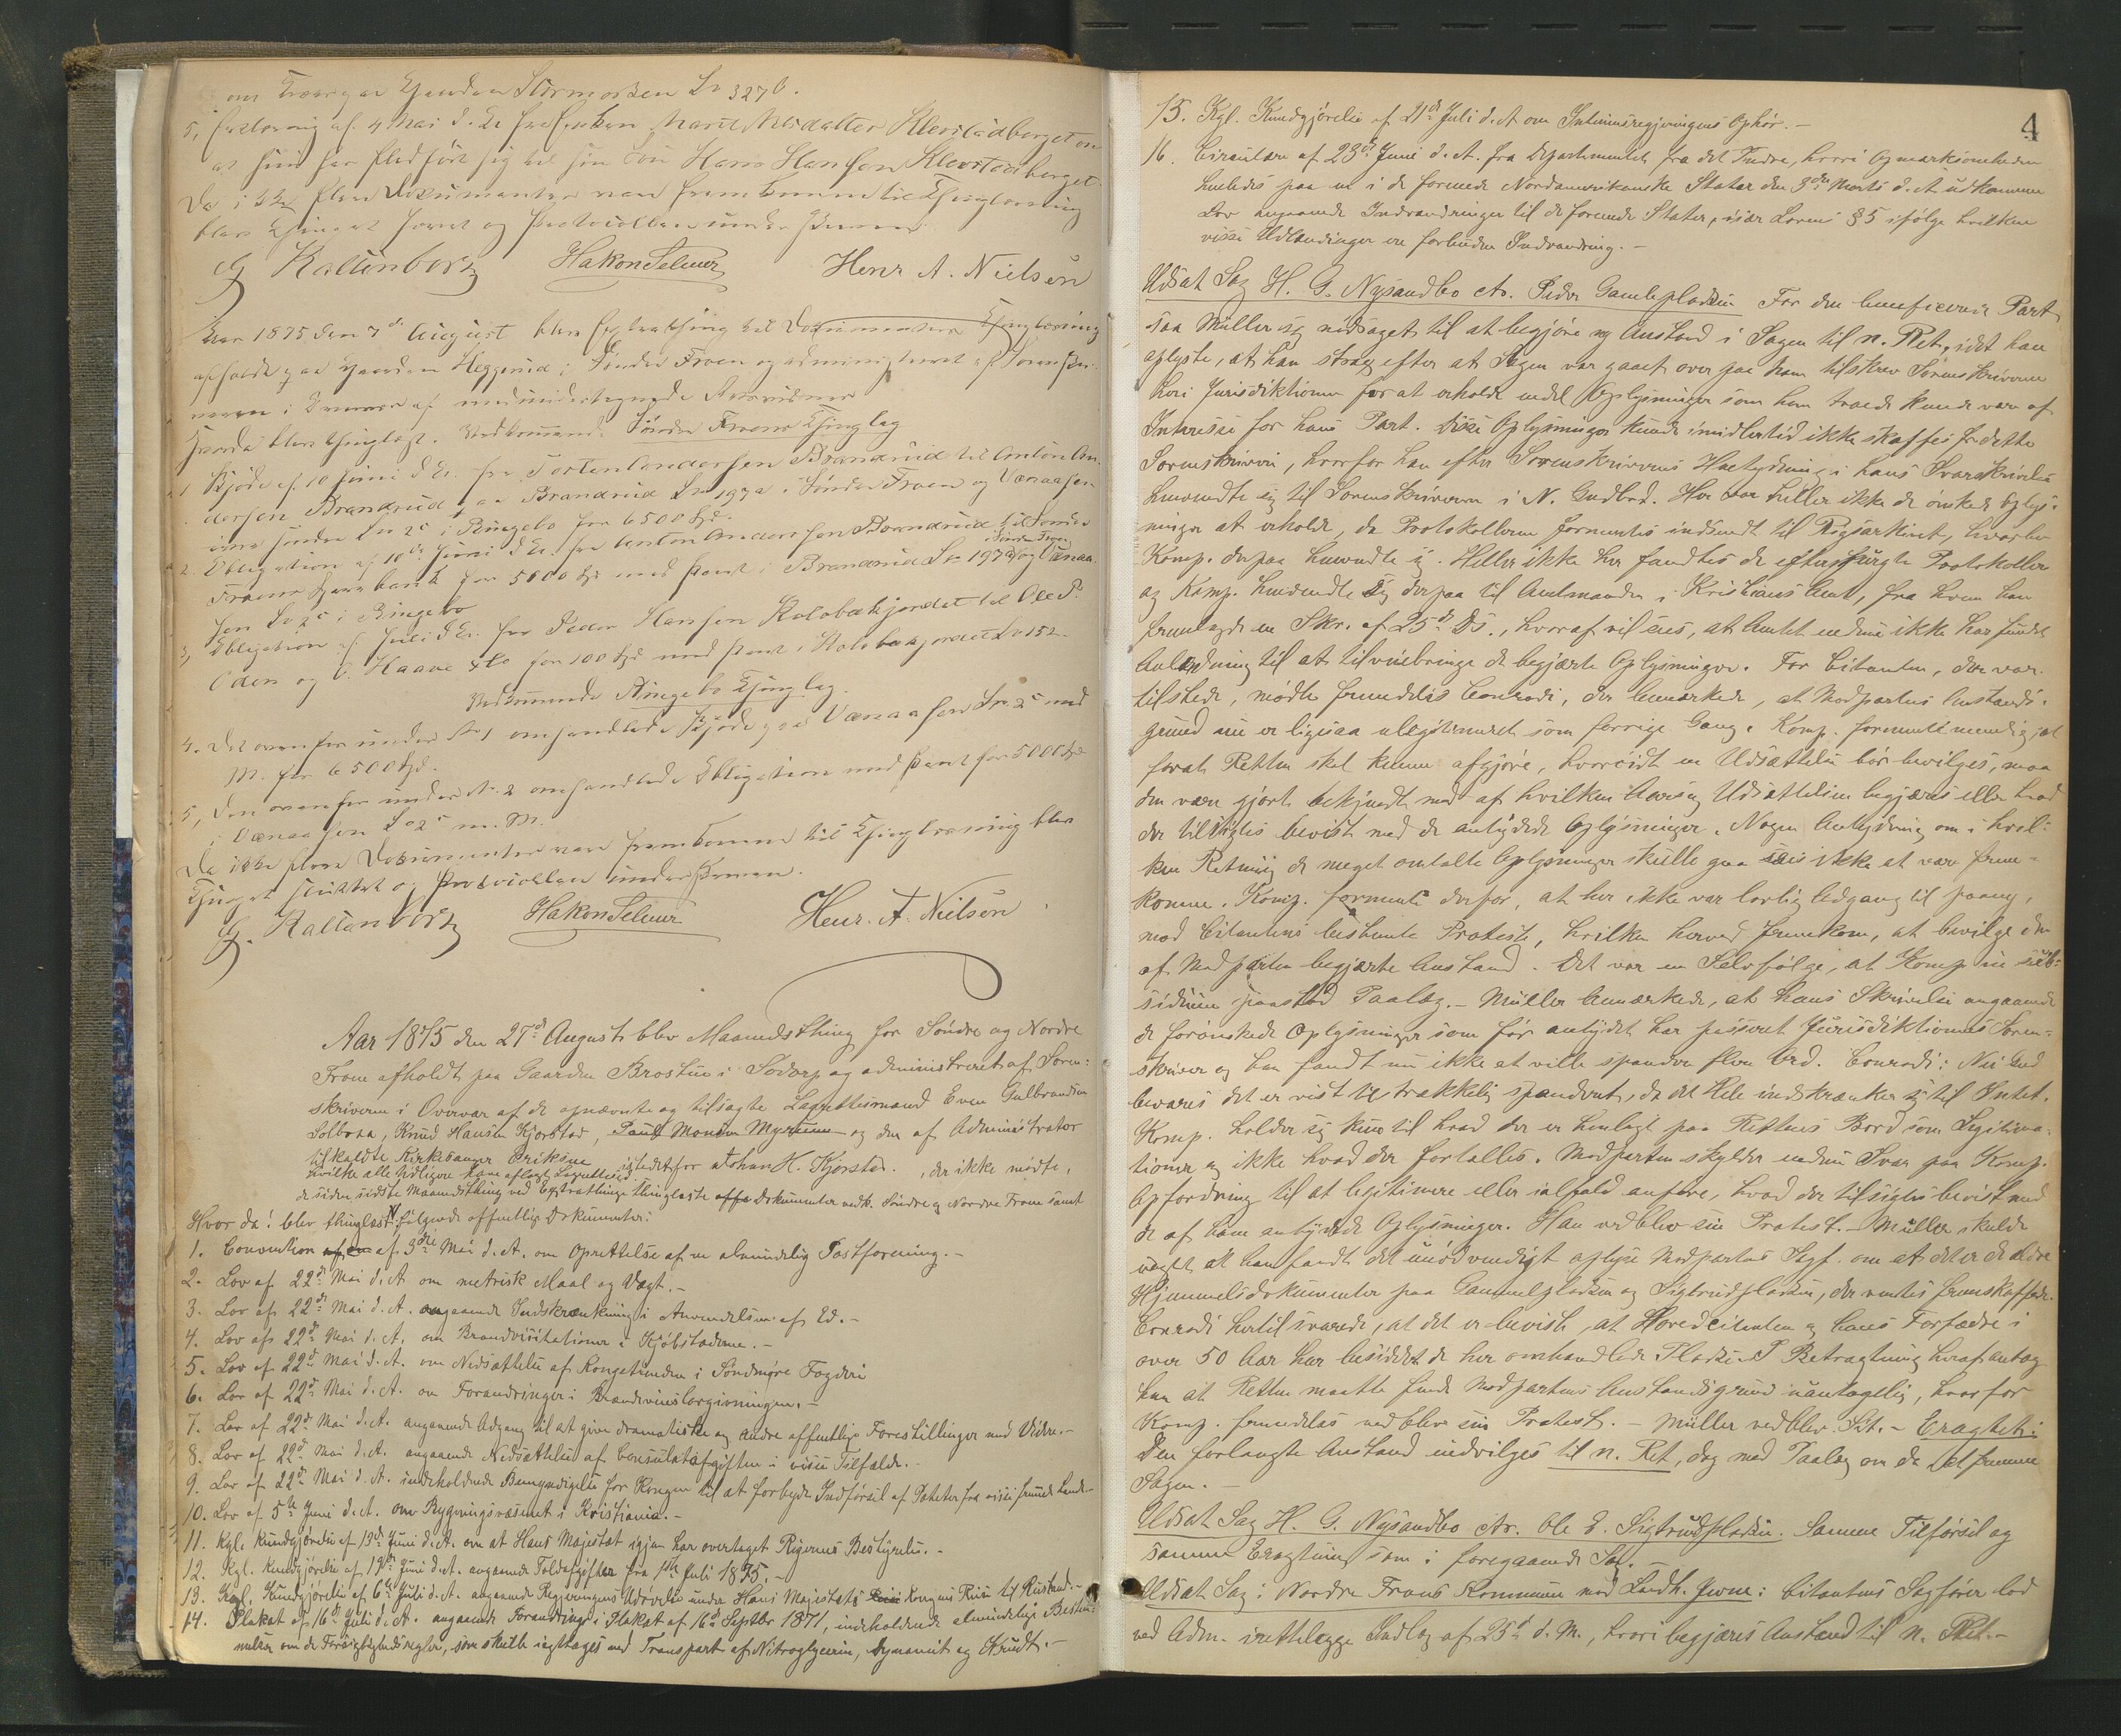 om Gaarden Stormorken Lno 327b.
5, Erklæring af 4 Mai d. Ar fra Enken Marit Klevstadberget om
at hun har fledført sig til sin Søn Hans Hansen Klevstadberget.
Da ikke flere Dokumenter var fremkomne til Thinglæsning
blev Thinget hævet og Protocollen underskreven.
G Kallenborg Hakon Selmer Henr A. Nielsen
Aar 1875 den 7de August blev Extrathing til Dokumenters Thinglæsning
afholdt paa Gaarden Heggerud i Søndre Fron og administreret af Sorenskri-
veren i Overvær af medundertegnede Retsvidner
Hvorda blev thinglæst. Vedkommende Søndre Frons Thinglag
1 Skjøde af 10 Juni d Ar. fra Torsten Andersen Brandrud til Anton An-
dersen Brandrud paa Brandrud Lno 197a i Søndre Fron og Vænaasen
søndre Lno 2c i Ringebo for 6500 Spd.
2. Obligation af 10de Juni d Ar. fra Anton Andersen Brandrud til Søndre
Frons Sparebank for 5000 Spd med Pant i Brandrud Lno 197a i Søndre Fron og Vænaa-
sen Lno 2c i Ringebo
3, Obligation af Juli d Ar. fra Peder Hansen Kolobækjordet til Ole P.
Oden og O. Haave & Co for 100 Spd med Pant i Kolobækjordet Lno 152.
Vedkommende Ringebo Thinglag.
4. Det ovenfor under No 1 omhandlede Skjøde paa Vænaasen Lno 2c med
M. for 6500 Spd.
5, Den ovenfor under No. 2 omhandlede Obligation med Pant for 5000 Spd
i Vænaasen Lno 2c m. M.
Da ikke flere Dokumenter var fremkomne til Thinglæsning blev
Thinget sluttet og Protocollen underskreven.
G. Kallenborg Hakon Selmer Henr. A. Nielsen
Aar 1875 den 27de August blev Maanedsthing for Søndre og Nordre
Fron afholdt paa Gaarden Brostuen i Sødorp og administreret af Soren-
skriveren i Overvær af de opnævnte og tilsagte Laugrettesmænd Even Gulbrandsen
Solbraa, Knud Hansen Kjorstad, Paul Monsen Myrum og den af Administrator
tilkaldte Kirkesanger Eriksen istedetfor Johan H. Kjorstad, der ikke mødte,
hvilke alle tidligere have aflagt Laugrettesed.
de siden sidste Maanedsthing ved Extrathinge thinglæste Dokumenter vedk. Søndre og Nordre Fron samt
Hvor da: blev thinglæst følgende offentlige Dokumenter:
1. Convention af 3die Mai d. A. om Oprettelse af en almindelig Postforening.-
2. Lov af 22de Mai d. A. om metrisk Maal og Vægt.-
3. Lov af 22de Mai d. A. angaaende Indskrænkning i Anvendelsen af Ed.-
4. Lov af 22de Mai d. A. om Brandvisitationer i Kjøbstæderne.-
5. Lov af 22de Mai d. A. om Nedsættelse af Kongetienden i Søndmøre Fogderi
6. Lov af 22de Mai d. A. om Forandringer i Brændevinslovgivningen.-
7. Lov af 22de Mai d. A. angaaende Adgang til at give dramatiske og andre offentlige Forestillinger med Videre.-
8. Lov af 22de Mai d. A. angaaende Nedsættelse af Consulatafgiften i visse Tilfælde.-
9. Lov af 22de Mai d. A. indeholdende Bemyndigelse for Kongen til at forbyde Indførsel af Poteter fra visse fremmede Lande.-
10. Lov af 5te Juni d. A. om Bygningsvæsenet i Kristiania.-
11. Kgl. Kundgjørelse af 13de Juni d. A. om at Hans Majestæt igjen har overtaget Rigernes Bestyrelse.-
12. Kgl. Kundgjørelse af 17de Juni d. A. angaaende Toldafgifter fra 1ste Juli 1875.-
13. Kgl. Kundgjørelse af 6te Juli d. A. angaaende Regjeringens Udøvelse under Hans Majestæts Kongens Reise til Rusland.-
14. Plakat af 16de Juli d. A. angaaende Forandringer i Plakat af 16de Septbr 1871, indeholdende almindelige Bestem-
melser om de Forsigtighedsregler, som skulle iagttages ved Transport af Nitroglycerin, Dynamit og Krudt.-
4
15. Kgl. Kundgjørelse af 21de Juli d. A. om Interimsregjeringens Ophør.-
16. Circulære af 23de Juni d. A. fra Departementet for det Indre, hvori Opmærksomheden
henledes paa en i de forenede Nordamerikanske Stater den 3die Marts d. A. udkommen
Lov angaaende Indvandringen til de forenede Stater, især Lovens § 5 ifølge hvilken
visse Udlændinger ere forbudne Indvandring.-
Udsat Sag H. G. Nysandbo ctr. Peder Gamlepladsen. For den beneficerede Part
saa Müller sig nødsaget til at begjære ny Anstand i Sagen til n. Ret, idet han
oplyste, at han strax efter at Sagen var gaaet over paa ham tilskrev Sorenskriveren
her i Jurisdiktionen for at erholde endel Oplysninger som han troede kunde være af
Interesse for hans Part. Disse Oplysninger kunde imidlertid ikke skaffes fra dette
Sorenskriveri, hvorfor han efter Sorenskriverens Hentydning i hans Svarskrivelse
henvendte sig til Sorenskriveren i N. Gudbrd. Her var heller ikke de ønskede Oplys-
ninger at erholde, da Protokollerne formentes indsendt til Rigsarkivet, hvorhen
Komp. derpaa henvendte sig. Heller ikke her fandtes de efterspurgte Protokoller
og Komp. henvendte sig derpaa til Amtmanden i Kristians Amt, fra hvem han
fremlagde en Skr. af 25de Ds., hvoraf vil sees, at Amtet endnu ikke har fundet
Anledning til at tilveiebringe de begjærte Oplysninger. For Citanten, der var
tilstede, mødte fremdeles Conradi, der bemærkede, at Modpartens Anstands-
grund nu er ligesaa ulegitimeret som forrige Gang. Komp. formente nemlig at
forat Retten skal kunne afgjøre, hvorvidt en Udsættelse bør bevilges, maa
den være gjort bekjendt med af hvilken Aarsag Udsættelsen begjæres eller hvad
der tilsigtes bevist med de antydede Oplysninger. Nogen Antydning om i hvil-
ken Retning de meget omtalte Oplysninger skulle gaa sees ikke at være frem-
komne. Komp. formente derfor, at her ikke var lovlig Adgang til paany,
mod Citantens bestemte Proteste, hvilken herved fremkom, at bevilge den
af Modparten begjærte Anstand. Det var en Selvfølge, at Komp in sub-
sidium paastod Paalæg.- Müller bemærkede, at hans Skrivelse angaaende
de forønskede Oplysninger som før antydet har passeret Jurisdiktionens Soren-
skriver og han fandt nu ikke at ville spandere flere Ord. Conradi: Nei Gud
bevares det er vist tilstrækkelig spanderet, da det Hele indskrænker sig til Intet.
Komp. holder sig kun til hvad der er henlagt paa Rettens Bord som Legitima-
tioner og ikke hvad der fortælles. Modparten skylder endnu Svar paa Komp.
Opfordring til at legitimere eller ialfald anføre, hvad der tilsigtes bevist med
de af ham antydede Oplysninger. Han vedblev sin Protest.- Müller skulde
noget at han fandt det unødvendigt oplyse Modpartens Sagf. om at det er de ældre
Hjemmelsdokumenter paa Gammelpladsen og Sigtrudpladsen, der ventes fremskaffede.
Conradi hertil svarede, at det er bevist, at Hovedcitanten og hans Forfædre i
over 50 Aar har besiddet de her omhandlede Pladse. I Betragtning heraf antog
han at Retten maatte finde Modpartens Anstandsgrund uantagelig, hvorfor
Komp. fremdeles vedblev sin Protest.- Müller vedblev Sit.- Eragtet:
Den forlangte Anstand indvilges til n. Ret, dog med Paalæg om da at fremme
Sagen.-
Udsat Sag H. G. Nysandbo ctr. Ole E. Sigtrudpladsen. Samme Tilførsel og
samme Eragtning som i foregaaende Sag.-
Udsat Sag: Nordre Frons Kommune mod Landh. Jevne: Citantens Sagfører lod
ved Adm. irettelægge Indlæg af 25de d. M., hvori begjæres Anstand til n. Ret.-